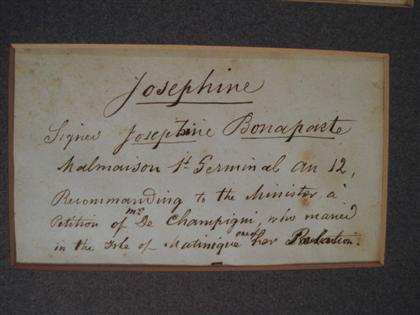 Josephine
Signed Josephine Bonaparte
Malmaison 1st Germinal an 12,
Recommanding to the Minister a
Petition of mr De Champigni, who maried
in the Isle of Matinique one of her Relation.